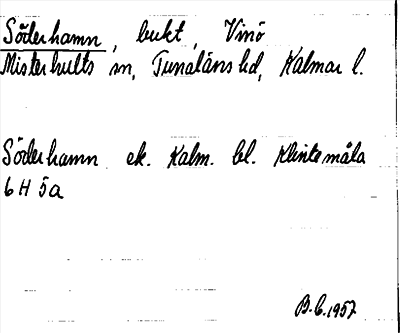 Söderhamn, bukt, Vinö
Misterhults sn, Tunaläns hd, Kalmar l.
Söderhamn ek. Kalm. bl. Klintemåla
6 H 5a
B.C. 1957